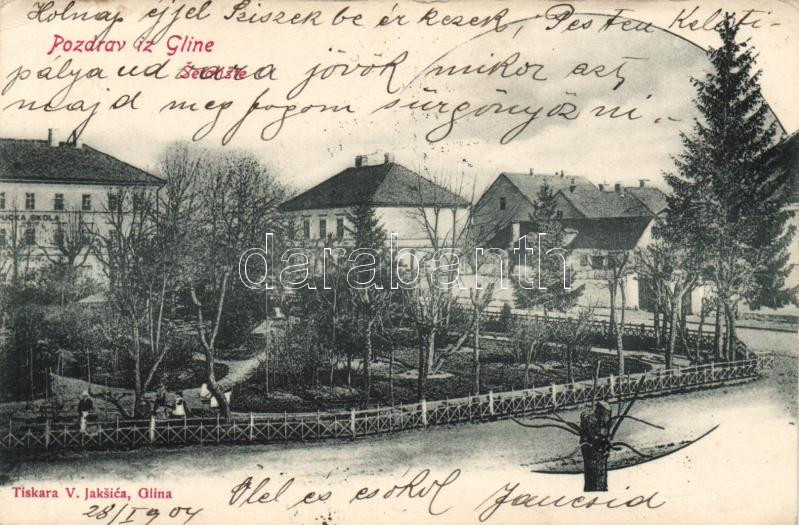 Holnap éjjel Sziszek be érkezek, Pesten Keleti-
Pozdrav iz Gline
pálya ud
Šetalište
a jövök mikor azt
majd meg fogom sürgönyözni...
PUČKA ŠKOLA
darabanth
Tiskara V. Jakšića, Glina
28/I 904
Ölel és csókol